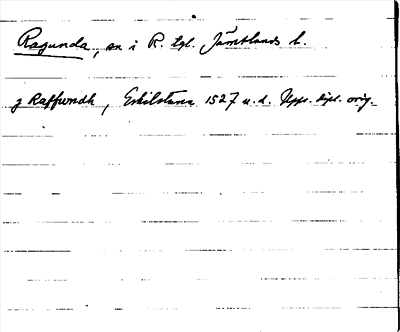 Ragunda, sn i R. tgl. Jämtlands l.
J Raffwndh, Eskilstuna 1527 u.d. Upps. dipl. orig.